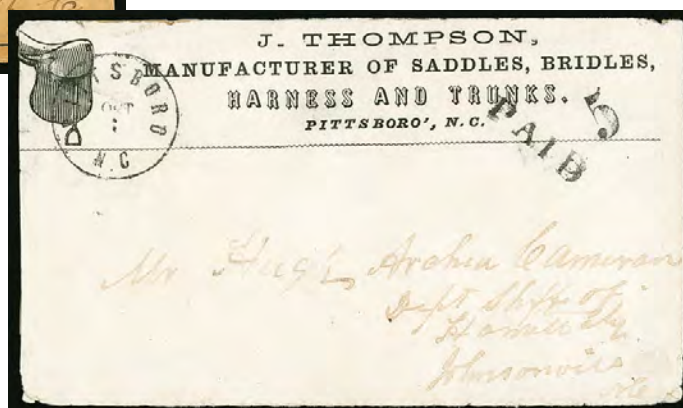 J. THOMPSON,
MANUFACTURER OF SADDLES, BRIDLES,
HARNESS AND TRUNKS.
PITTSBORO', N.C.
PITTSBORO
OCT
N.C
PAID 5
Mr Hugh Archie Cameron
Dept Shff of
Harnett Cty
Johnsonville
NC